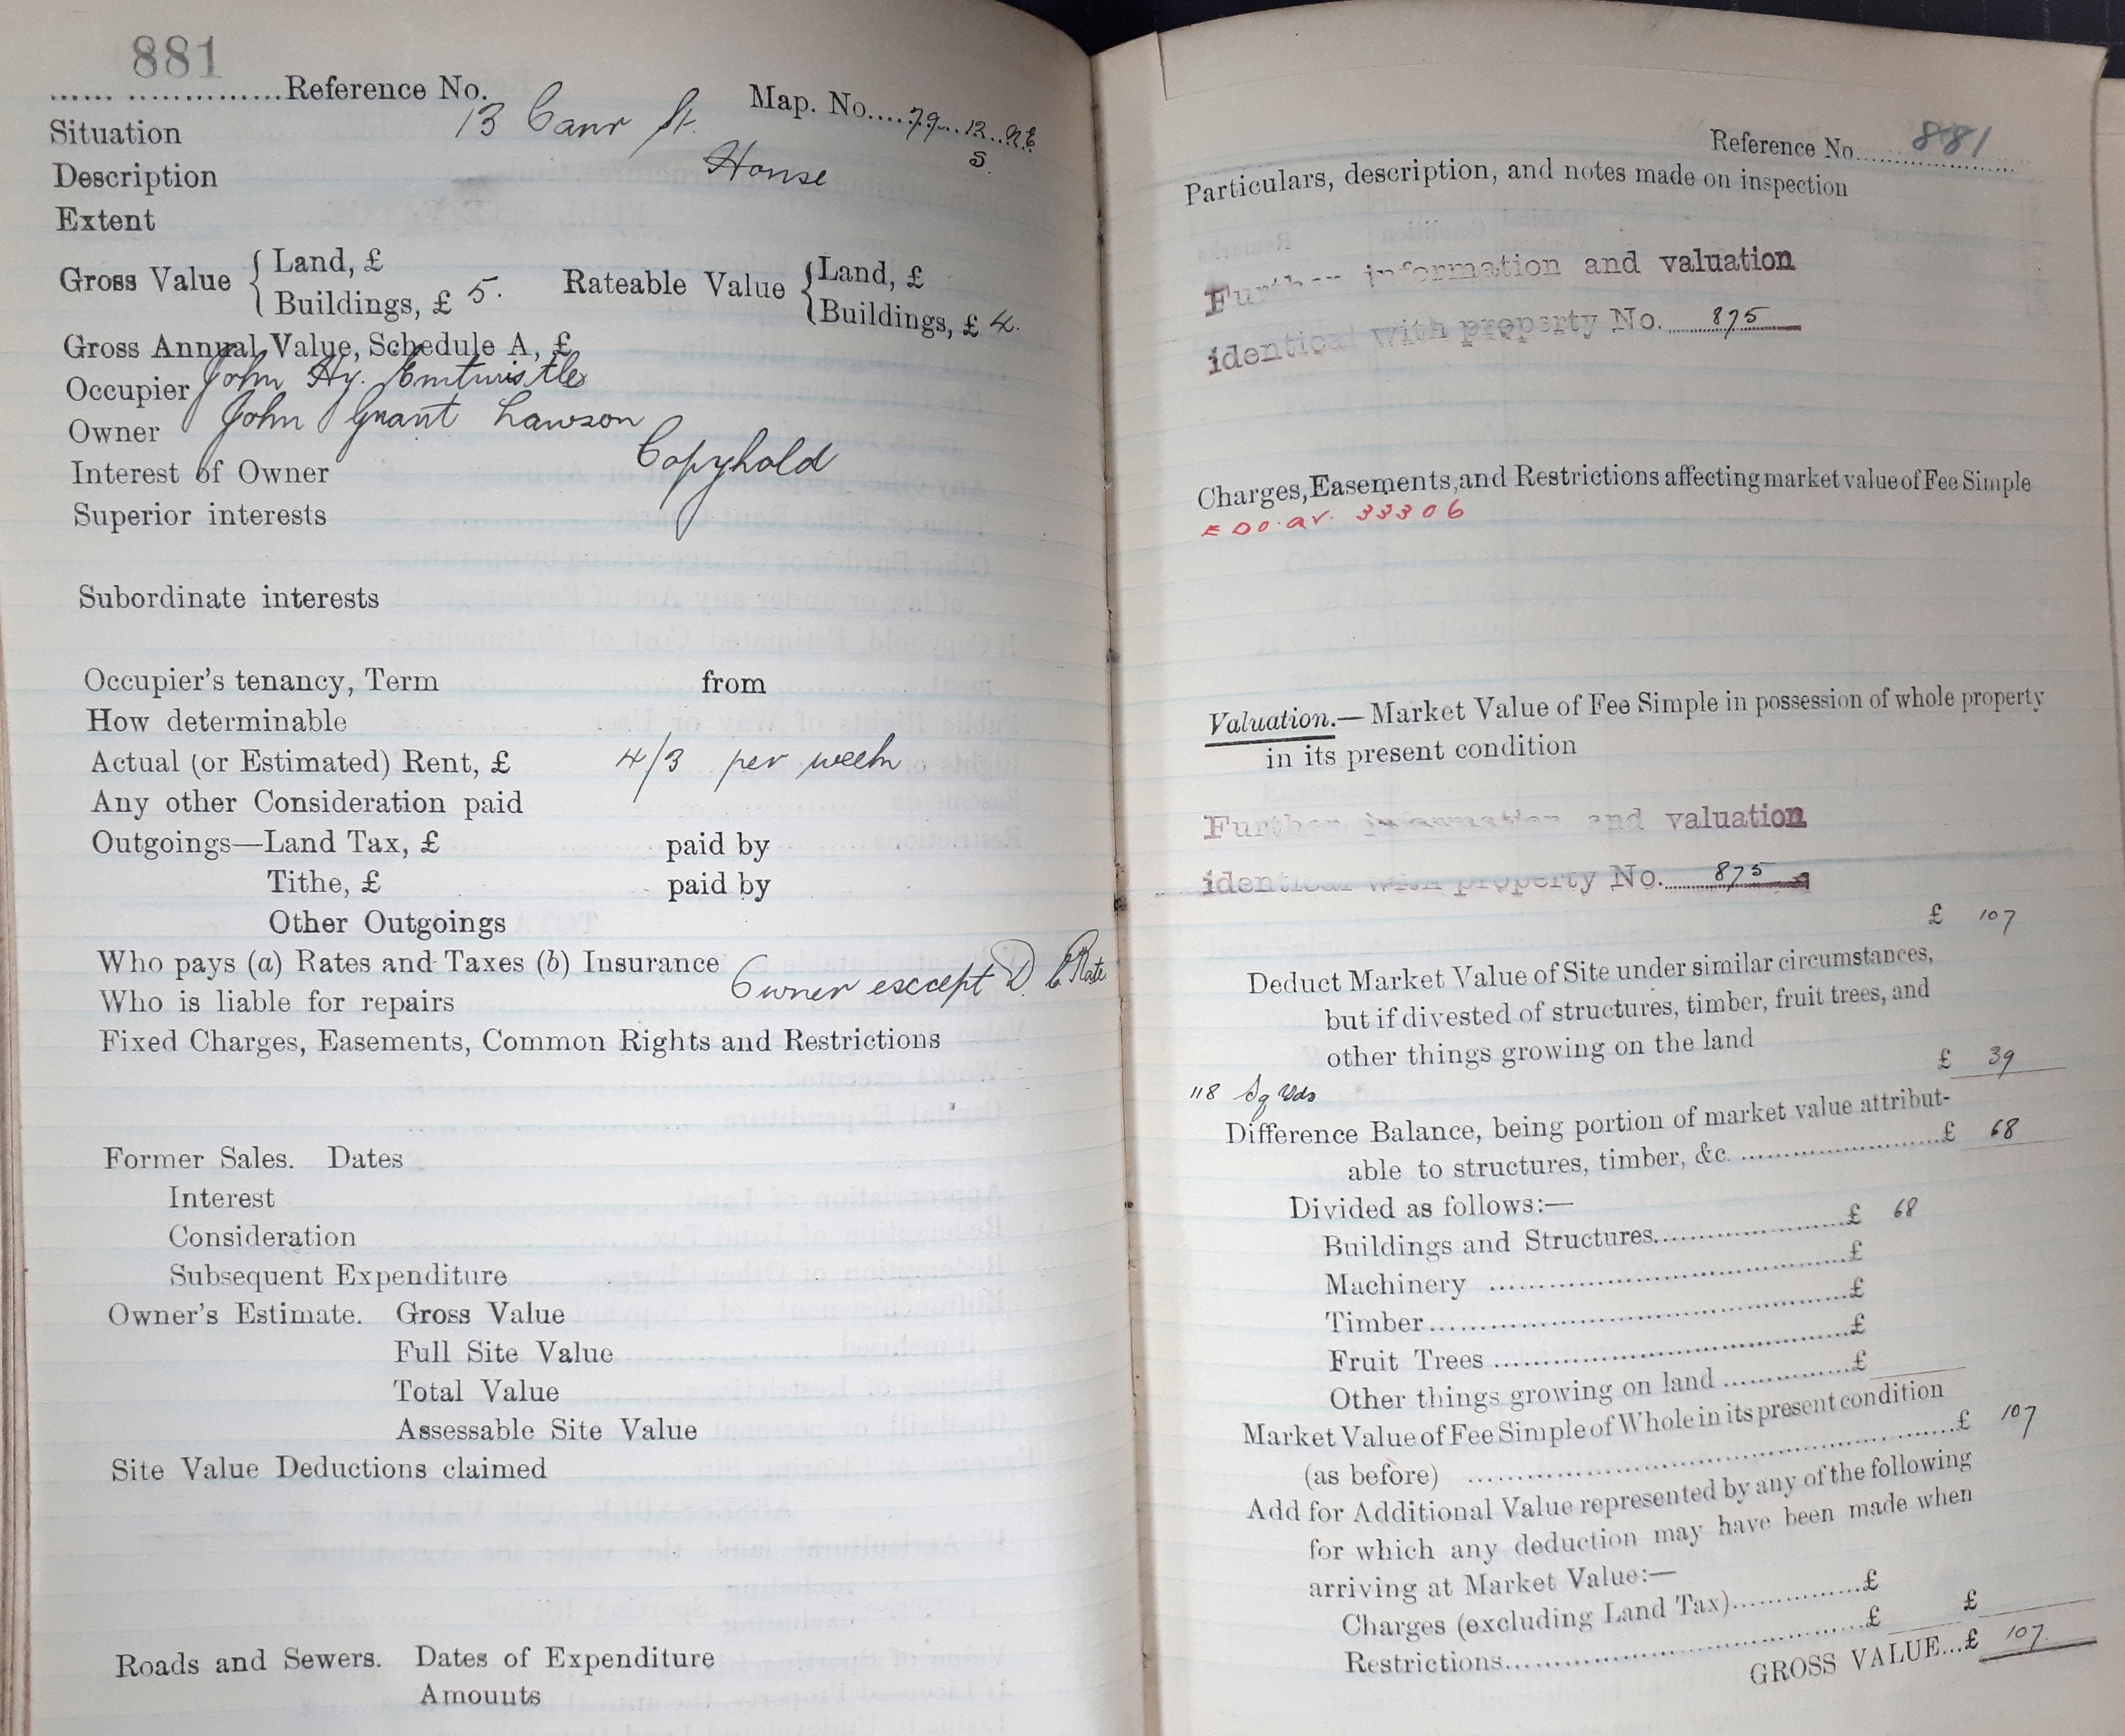 881
Reference No.
Map. No. 79 12 N.E.
S.
Situation 13 Carr St.
Description House
Extent
Gross Value { Land, £
Buildings, £ 5.
Rateable Value { Land, £
Buildings, £ 4.
Gross Annual Value, Schedule A, £
Occupier John Hy. Entwistle
Owner John Grant Lawson
Interest of Owner Copyhold
Superior interests
Subordinate interests
Occupier's tenancy, Term from
How determinable
Actual (or Estimated) Rent, £ 4/3 per week
Any other Consideration paid
Outgoings—Land Tax, £ paid by
Tithe, £ paid by
Other Outgoings
Who pays (a) Rates and Taxes (b) Insurance
Owner except D. C. Rate
Who is liable for repairs
Fixed Charges, Easements, Common Rights and Restrictions
Former Sales. Dates
Interest
Consideration
Subsequent Expenditure
Owner's Estimate. Gross Value
Full Site Value
Total Value
Assessable Site Value
Site Value Deductions claimed
Roads and Sewers. Dates of Expenditure
Amounts
Reference No. 881
Particulars, description, and notes made on inspection
Further information and valuation
identical with property No. 875
Charges, Easements, and Restrictions affecting market value of Fee Simple
33306
Valuation.— Market Value of Fee Simple in possession of whole property
in its present condition
Further information and valuation
identical with property No. 875
£ 107
Deduct Market Value of Site under similar circumstances,
but if divested of structures, timber, fruit trees, and
other things growing on the land
£ 39
118 Sq Yds
Difference Balance, being portion of market value attribut-
able to structures, timber, &c. £ 68
Divided as follows:—
Buildings and Structures £ 68
Machinery £
Timber £
Fruit Trees £
Other things growing on land £
Market Value of Fee Simple of Whole in its present condition
(as before) £ 107
Add for Additional Value represented by any of the following
for which any deduction may have been made when
arriving at Market Value:—
Charges (excluding Land Tax) £
Restrictions £ £
GROSS VALUE...£ 107